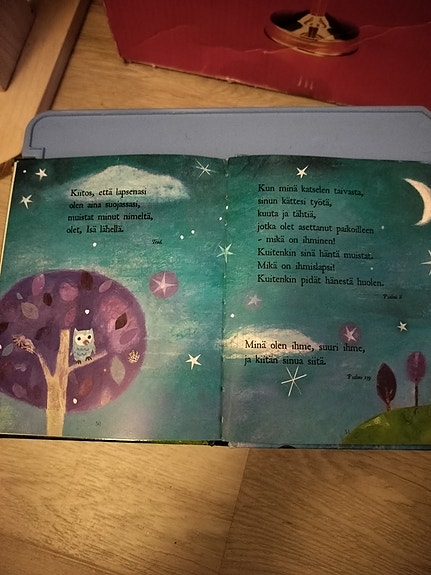 Kiitos, että lapsenasi
olen aina suojassasi,
muistat minut nimeltä,
olet, Isä lähellä.
Kun minä katselen taivasta,
sinun kättesi työtä,
kuuta ja tähtiä,
jotka olet asettanut paikoilleen
- mikä on ihminen!
Kuitenkin sinä häntä muistat.
Mikä on ihmislapsi!
Kuitenkin pidät hänestä huolen.
Psalmi 8
Minä olen ihme, suuri ihme,
ja kiitän sinua siitä.
Psalmi 139